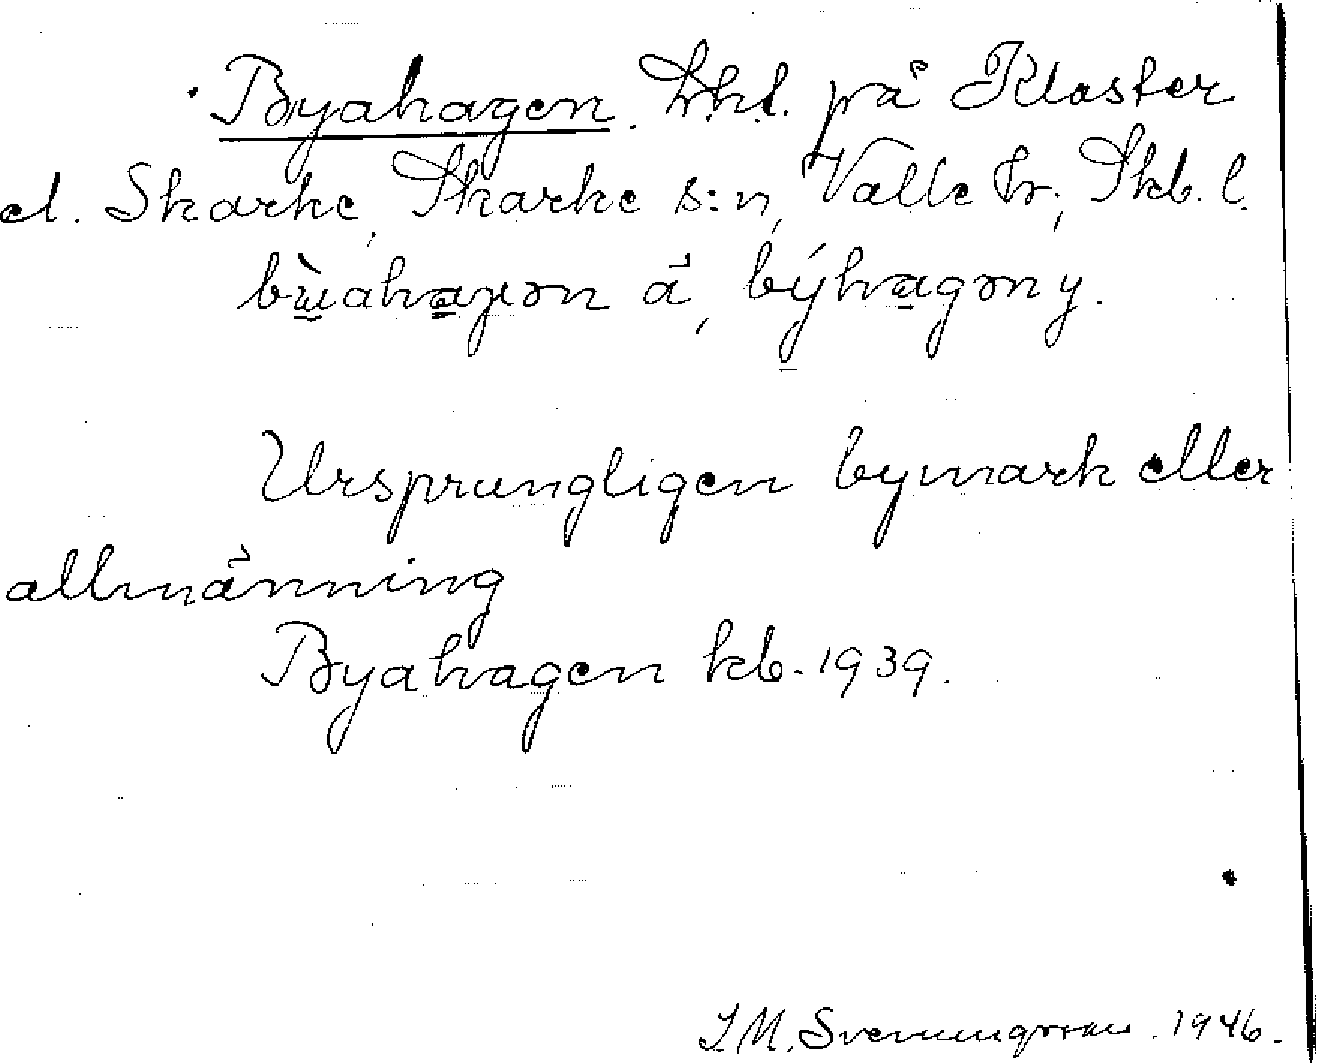 Byahagen. lhl. på Kloster
el. Skarke, Skarke s:n, Valle hr; Skb. l.
bẁahaɣən ä, býhagən y.
Ursprungligen bymark eller
allmänning
Byahagen kb. 1939.
I.M. Svenungsson. 1946.